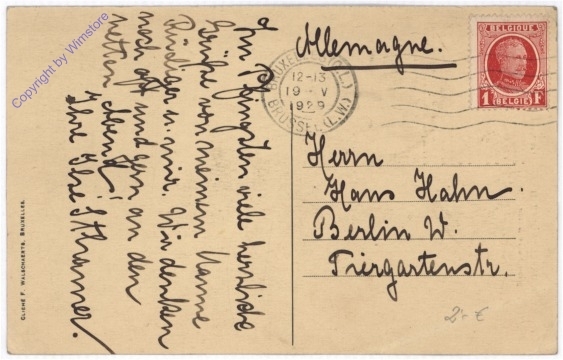 Zu Pfingsten viele herzliche
Grüße von meinem Manne
Rüdiger u. mir. Wir denken
noch oft und gern an den
netten Abend!
Ihre Ilse Kramer.
Allemagne.
BRUXELLES
12-13
19 - V
1929
BRUSSEL
BELGIQUE
1 F
BELGIE
Herrn
Hans Hahn.
Berlin W.
Tiergartenstr.
2.- €
CLICHÉ F. WALSCHAERTS, BRUXELLES.
Copyright by Wimstore